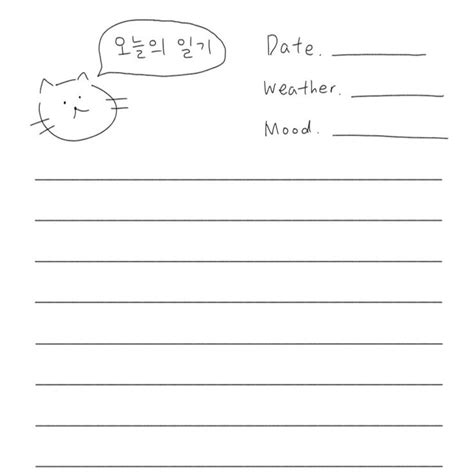 오늘의 일기
Date.
Weather.
Mood.